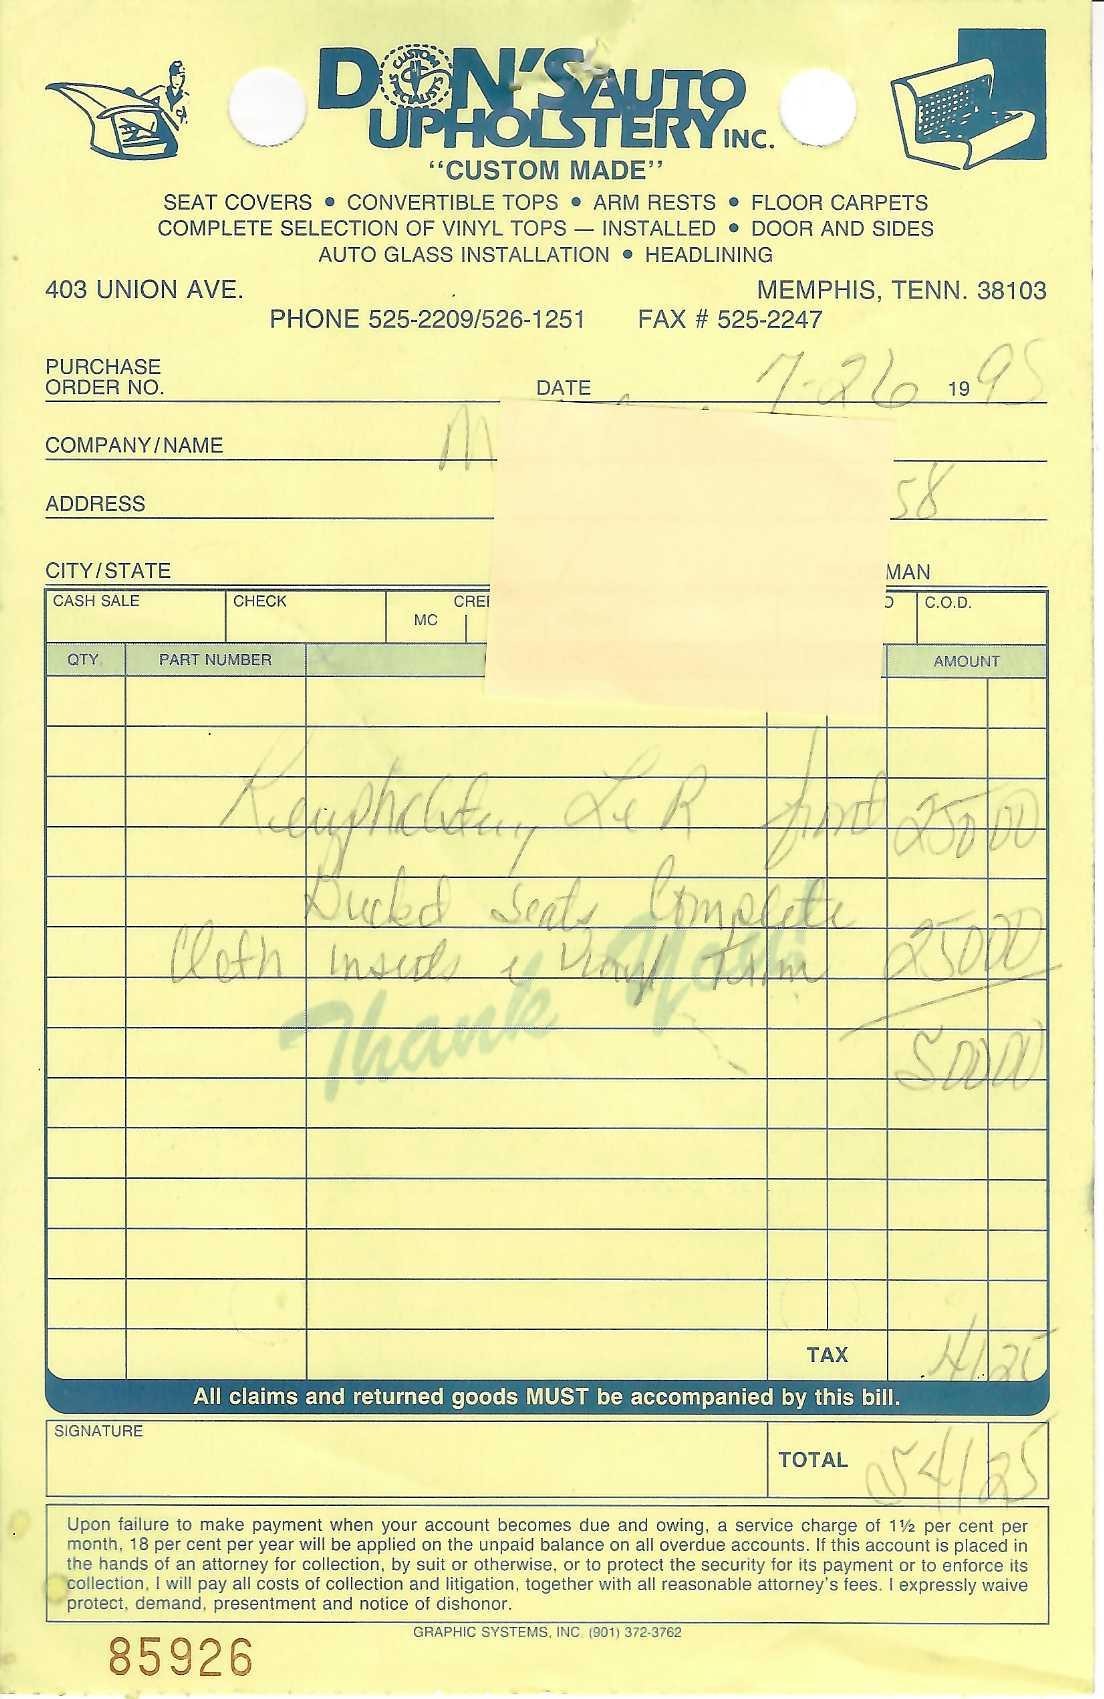 DON'S AUTO
CUSTOM SPECIALISTS
UPHOLSTERY INC.
"CUSTOM MADE"
SEAT COVERS • CONVERTIBLE TOPS • ARM RESTS • FLOOR CARPETS
COMPLETE SELECTION OF VINYL TOPS — INSTALLED • DOOR AND SIDES
AUTO GLASS INSTALLATION • HEADLINING
403 UNION AVE. MEMPHIS, TENN. 38103
PHONE 525-2209/526-1251 FAX # 525-2247
PURCHASE
ORDER NO. DATE 7-26 1995
COMPANY/NAME M
ADDRESS 58
CITY/STATE MAN
CASH SALE CHECK MC C.O.D.
QTY. PART NUMBER AMOUNT
L & R front 250 00
Seats Complete
Cloth & Vinyl 250 00
Thank You!
500 00
TAX 41 25
All claims and returned goods MUST be accompanied by this bill.
SIGNATURE
TOTAL 541 25
Upon failure to make payment when your account becomes due and owing, a service charge of 1½ per cent per
month, 18 per cent per year will be applied on the unpaid balance on all overdue accounts. If this account is placed in
the hands of an attorney for collection, by suit or otherwise, or to protect the security for its payment or to enforce its
collection, I will pay all costs of collection and litigation, together with all reasonable attorney's fees. I expressly waive
protect, demand, presentment and notice of dishonor.
GRAPHIC SYSTEMS, INC. (901) 372-3762
85926